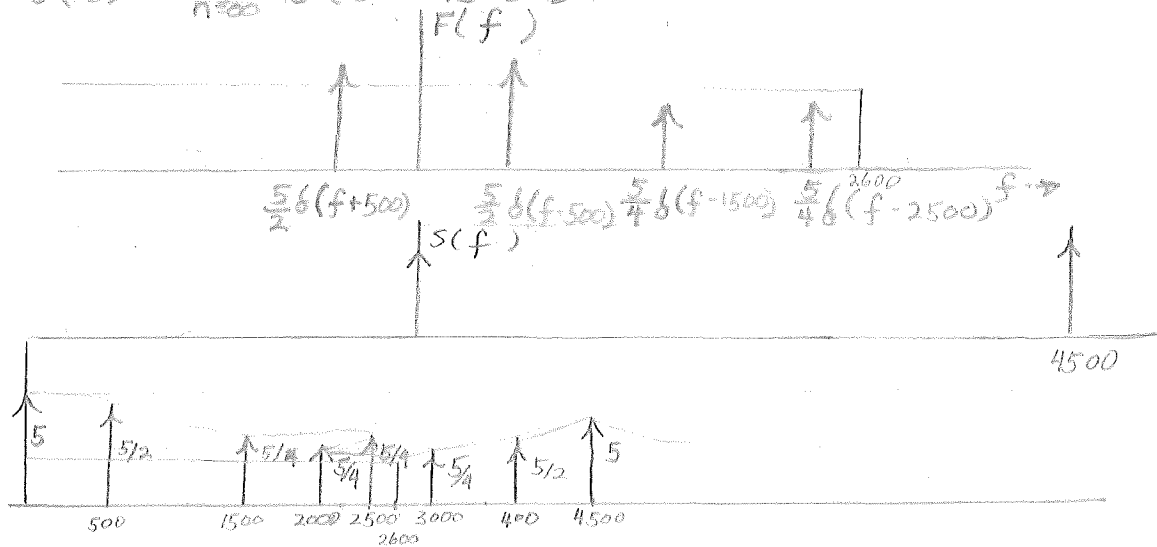 n=∞
F(f)
5/2 δ(f+500) 5/2 δ(f-500) 5/4 δ(f-1500) 5/4 δ(f-2500) 2600 f→
S(f)
4500
5 5/2 5/4 5/4 5/4 5/4 5/2 5
500 1500 2000 2500 2600 3000 400 4500